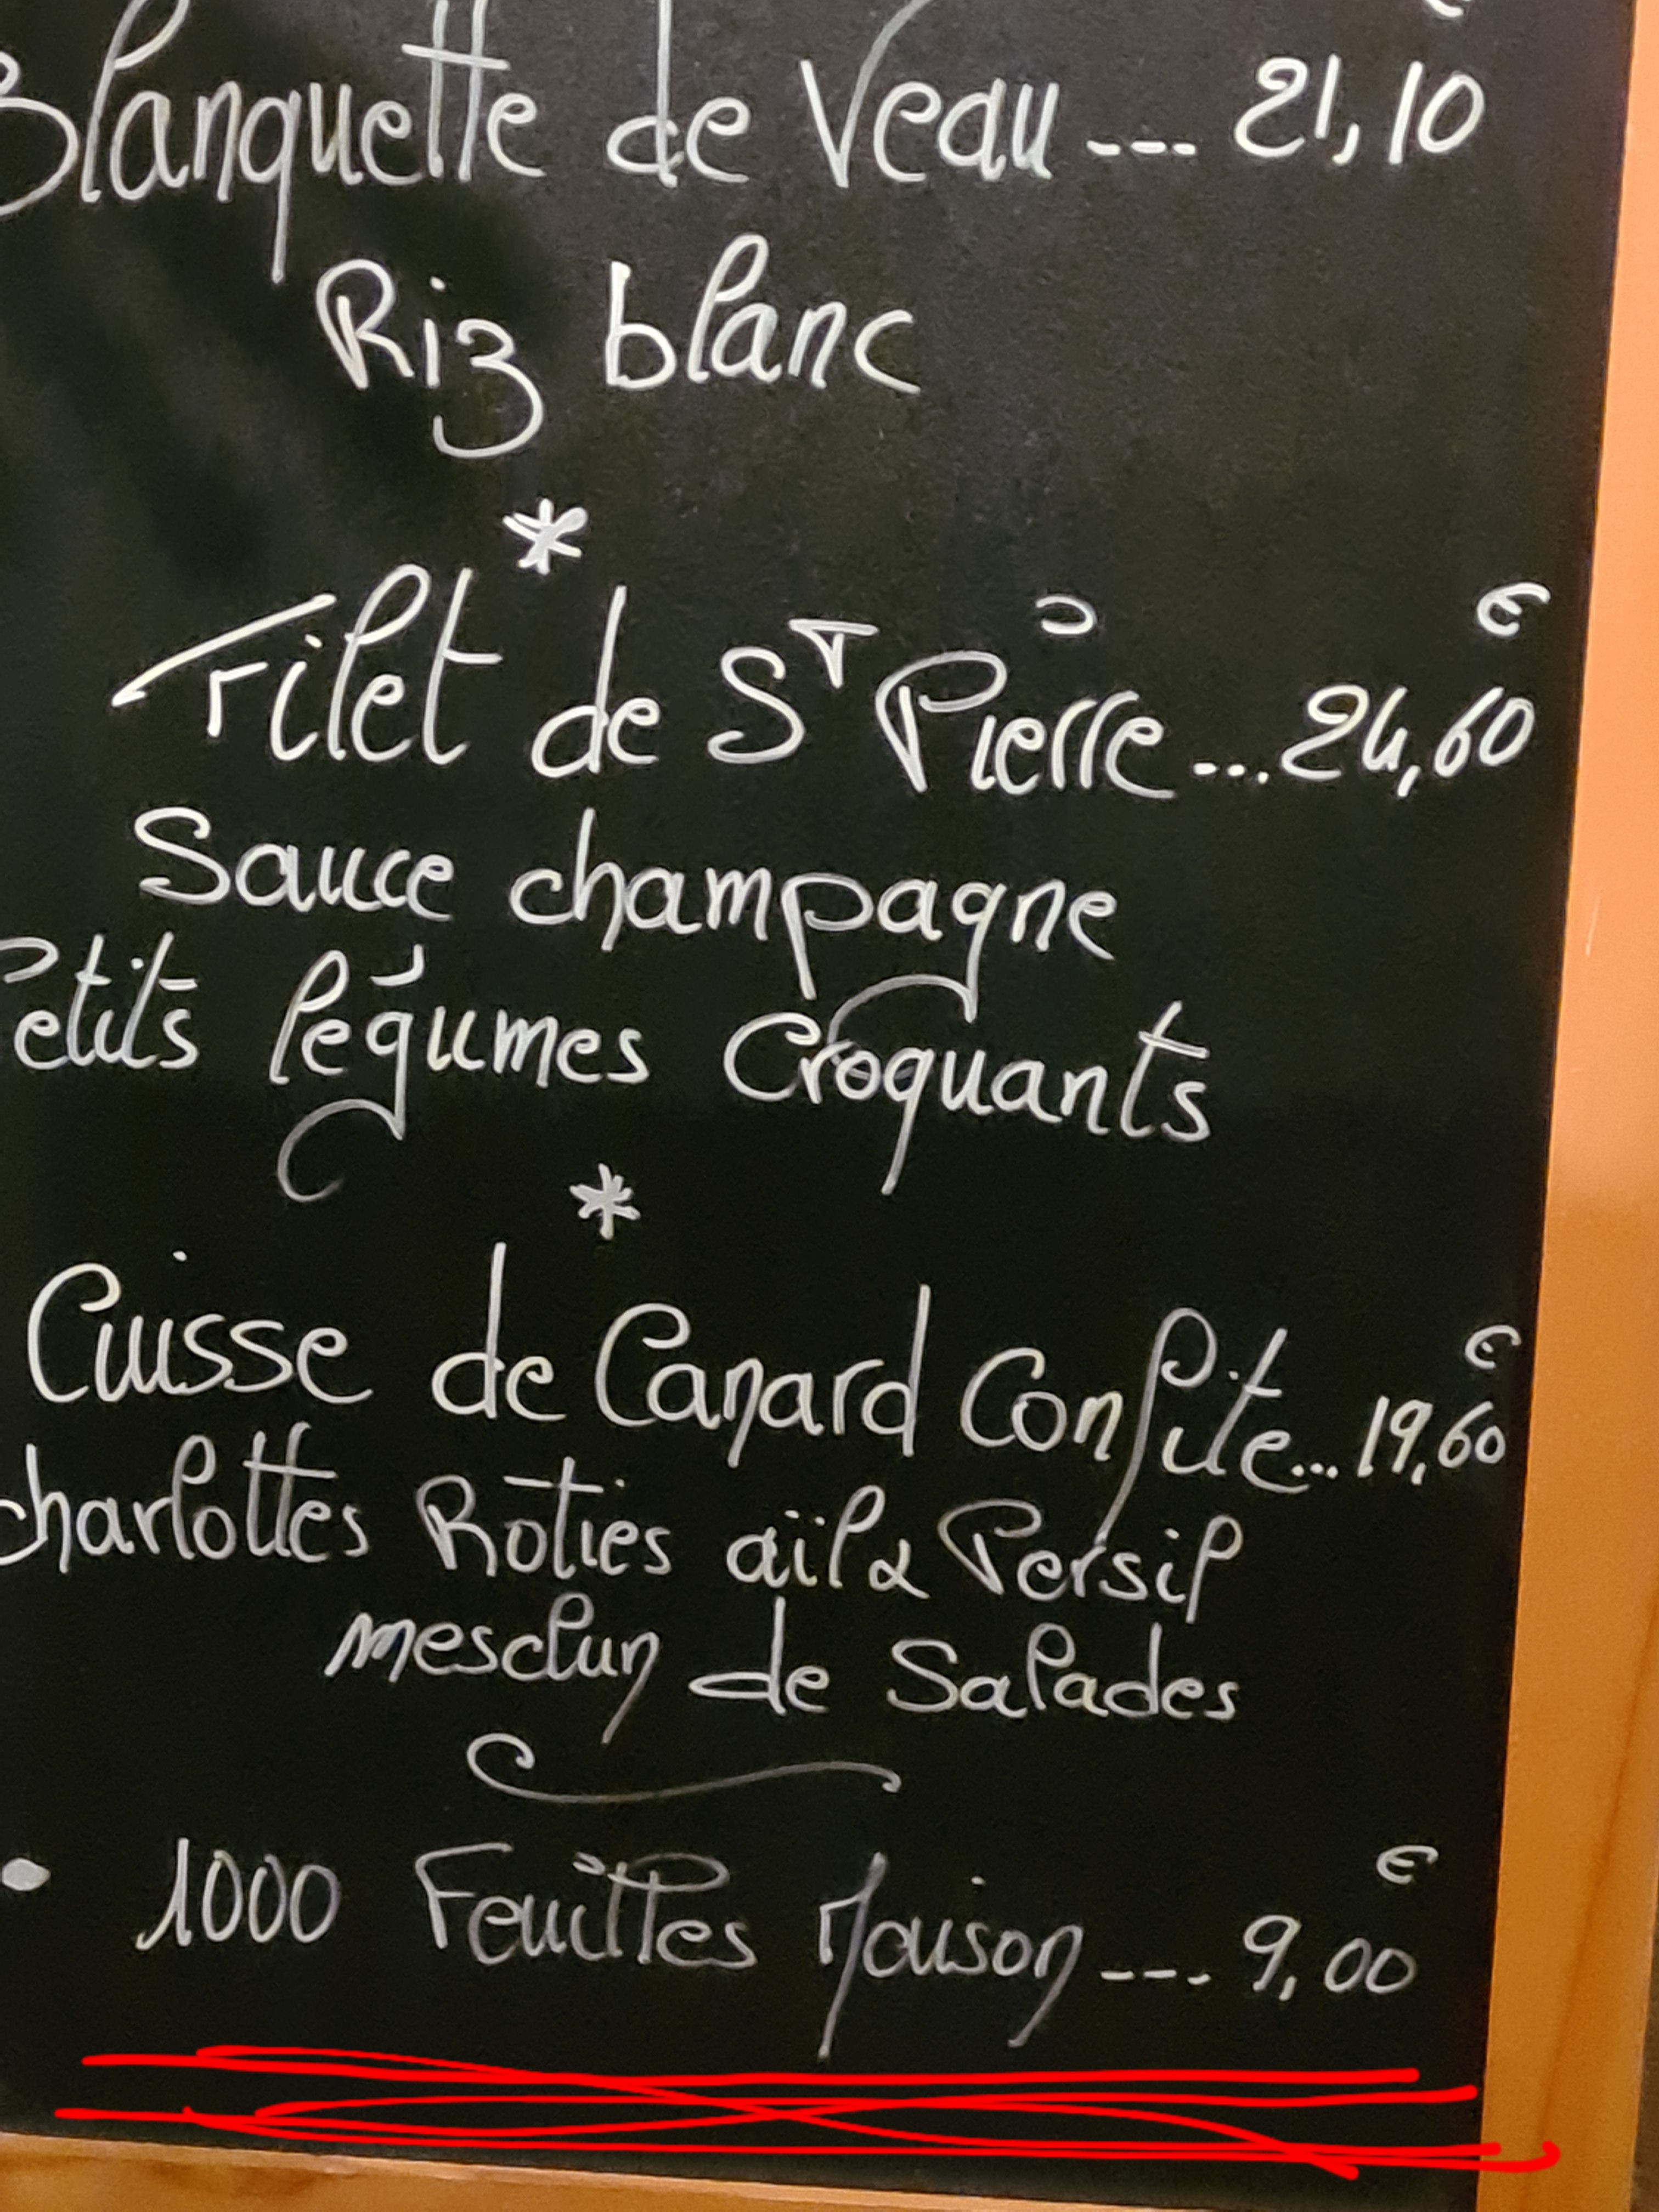 Blanquette de Veau --- 21,10
Riz blanc
*
Filet de St Pierre ... 24,60€
Sauce champagne
Petits légumes Croquants
*
Cuisse de Canard Confite... 19,60€
charlottes Roties aïl & Persil
mesclun de Salades
• 1000 Feuilles Maison ---- 9,00€